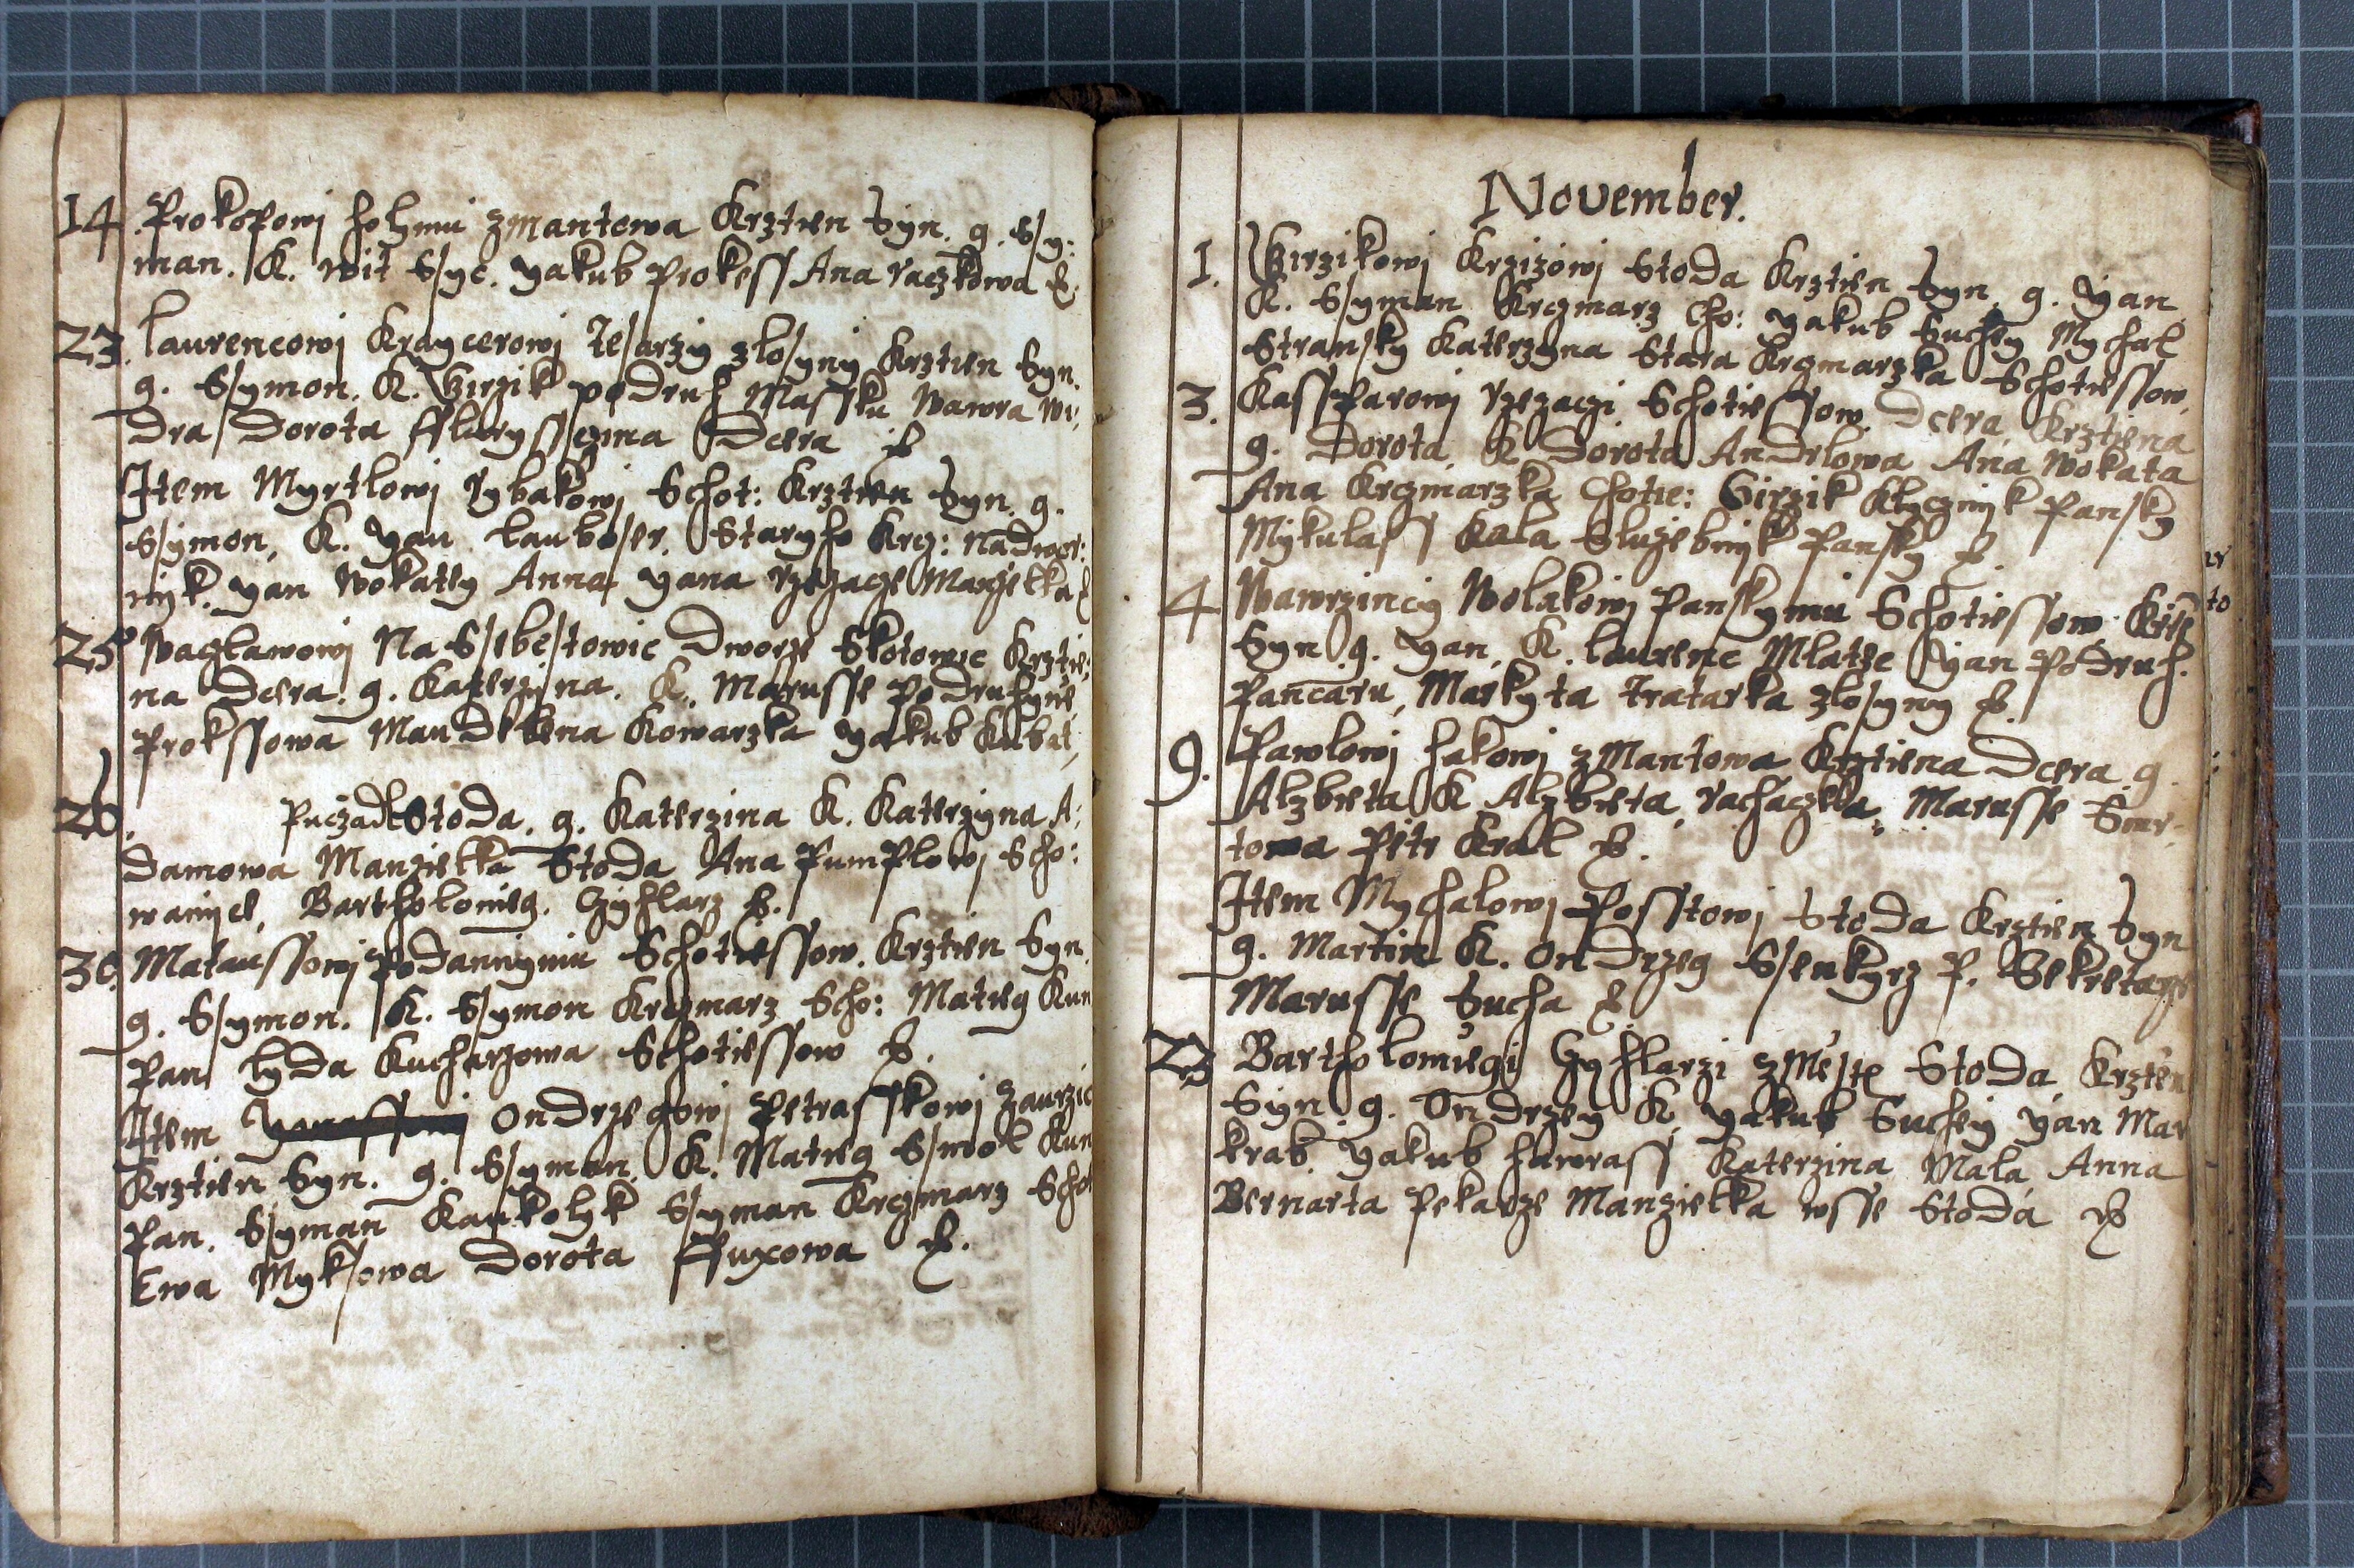 14 Prokopowj holymu zMantowa Krztien Syn. g. Sſy:
man. K. Wit Sſyc. Yakub Prokeſſ Ana Raczkowa &.
23. Laurencowj Kraycerowj Teſarzy zloſyny Krztien Syn.
g. Sſymon. K. Girzik podruh Maſſku Wawra Wy,
dra Dorota Dcera &
Item Myrtlowj Rybakowj Schot: Krztien Syn. g.
Sſymon, K. Yan Staryho Krcz:
nyk. Yan Wokatey Anna Yana Rzezacze Manzelka &
25 Waczlawowj Na Sſebeſtowic Dworze Skotowic Krztie:
na Dcera. g. Katerzina. K. Maruſſe Podruhyně
Prokſſowa Mandelena Kowarzka Yakub Kubat,
26. Puczadl Stoda. g. Katerzina K. Katerzyna A:
damowa Manzielka Stoda Ana Pumplowj Scho:
wanyel, Bartholomieg. Czyhlarz &.
30. Matauſſowj Podannymu Schotieſſow. Krztien Syn.
g. Sſymon. K. Sſymon Krczmarz Scho: Matieg Kun
Pan lyda Kucharzowa Schotieſſow &.
Item Ondrzegowj Petraſſkowj Zaurzic
Krztien Syn. g. Sſyman. K. Matieg Sſmol Kun
Pan. Sſyman Kaukolyk Sſyman Krczmarz Schot
Ewa Mykſowa Dorota Ffuxowa &.
November.
1. Girzikowj Krzizowj Stoda Krztien Syn. g. Yan
K. Sſyman Krczmarz Cho: Yakub Suchey Mychal
Stranſky Katerzyna Stara Krczmarzka Schotieſſow.
3. Kaſſparowj Rzezaczi Schotieſſow. Dcera Krztiena
g. Dorota K Dorota Andrlowa Ana Wokata
Ana Krczmarzka Chotie: Girzik Klycznyk Panſky
Mykulaſſ Kala Sluzebnyk Panſky &.
4 Wawrzincy Wolakowj Panſkymu Schotieſſow.
Syn g. Yan. K. Laurenc Mlatze Yan Podruh.
Pancaru, Markyta Tratarka zloſyny &.
9. Pawlowj hakowj zMantowa Krztiena Dcera g.
Alzbieta K Alzbieta Maruſſe
towa Petr Kral &.
Item Mychalowj Poſſtowj Stoda Krztien Syn
g. Martin K. Ondrzeg Sſenkyrz P. Sekretarze
Maruſſe Sucha &
23 Bartholomiegj Czyhlarzi zMeſte Stoda Krzten
Syn g. Ondrzey K. Yakub Suchey Yan Mar
krab. Yakub hawraſſ Katerzina Mala Anna
Bernarta Pekarze Manzielka wſſe Stoda &